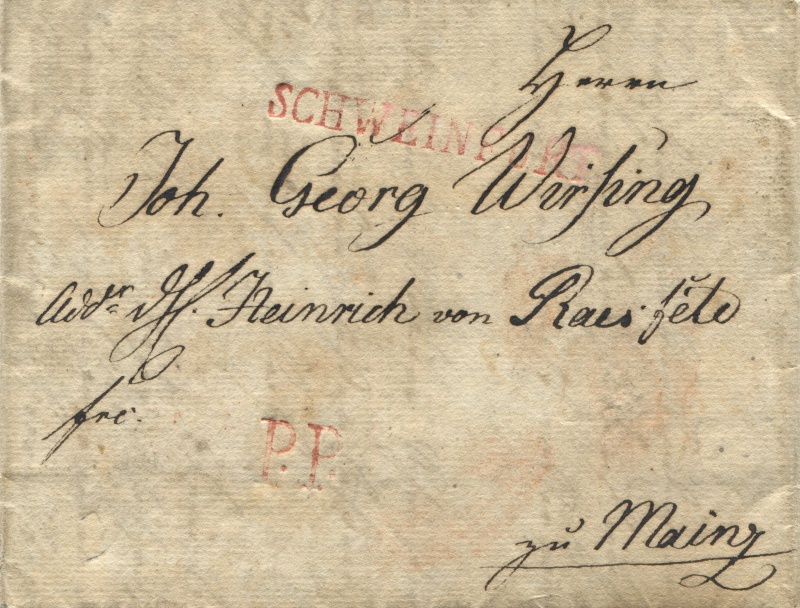 Herrn
SCHWEINFURT
Joh. Georg Wirsing
Addr. HH. Heinrich von Raes: féld
frc.
P.P.
zu Mainz